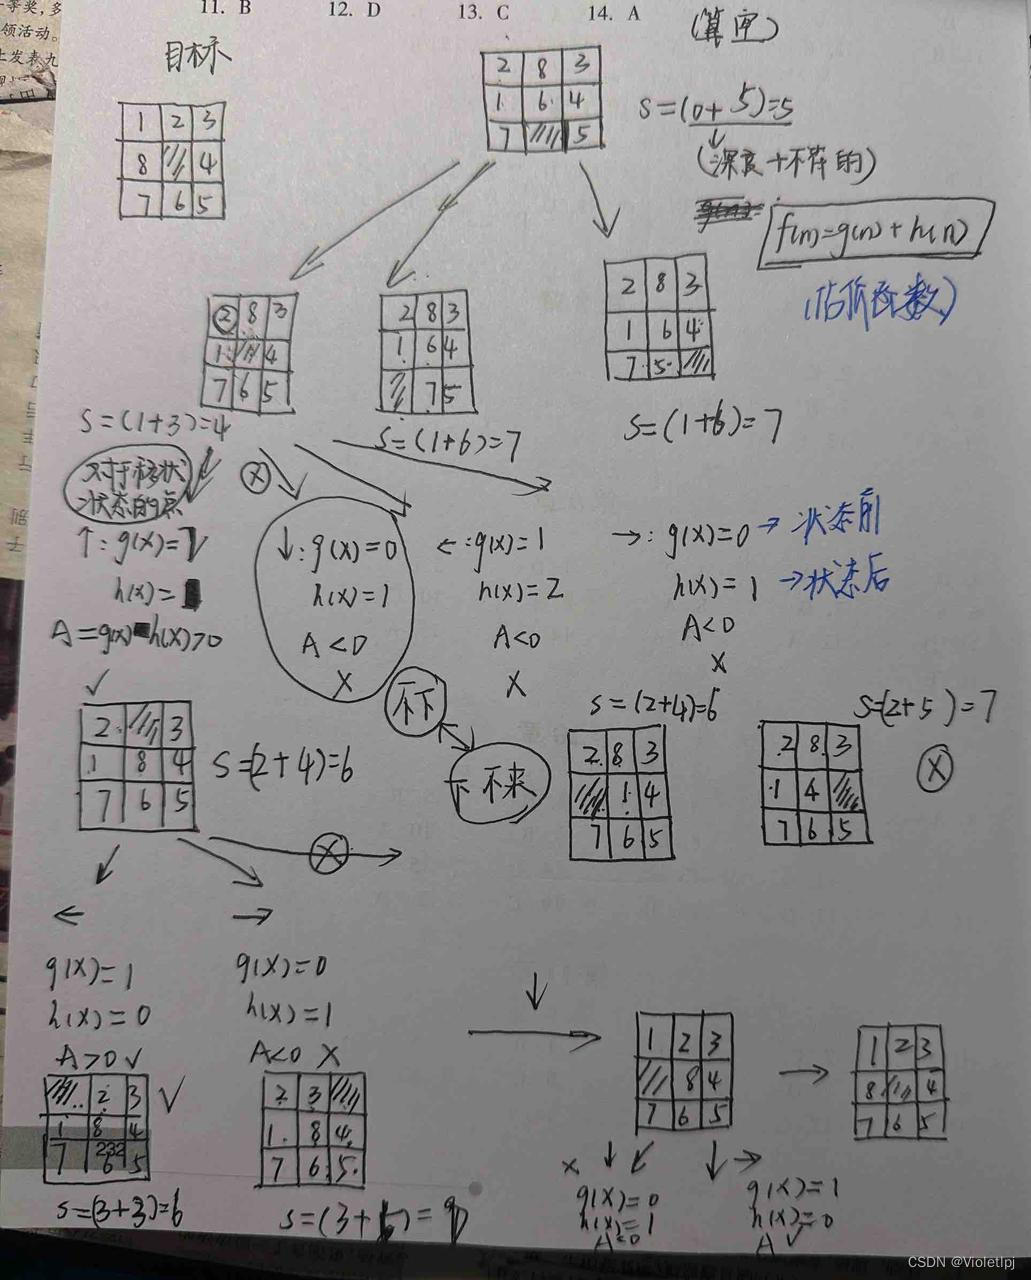 11. B 12. D 13. C 14. A
等奖,多
领活动。
上发表九
目标
1 2 3
8 4
7 6 5
2 8 3
1 6 4
7 5
S=(0+5)=5
(深度+不符的)
f(n)=g(n)+h(n)
(估价函数)
2 8 3
1 4
7 6 5
S=(1+3)=4
2 8 3
1 6 4
7 5
S=(1+6)=7
2 8 3
1 6 4
7 5
S=(1+6)=7
对于
状态的点
↑:g(x)=
h(x)=
A=g(x)-h(x)>0
✓
↓:g(x)=0
h(x)=1
A<0
X
←:g(x)=1
h(x)=2
A<0
X
→:g(x)=0→状态前
h(x)=1→状态后
A<0
X
不下
不来
2 3
1 8 4
7 6 5
S=(2+4)=6
S=(2+4)=6
2 8 3
1 4
7 6 5
S=(2+5)=7
2 8 3
1 4
7 6 5
X
←
g(x)=1
h(x)=0
A>0 ✓
2 3
1 8 4
7 6 5
232
✓
S=(3+3)=6
→
g(x)=0
h(x)=1
A<0 X
2 3
1 8 4
7 6 5
S=(3+
1 2 3
8 4
7 6 5
1 2 3
8 4
7 6 5
x ↓
g(x)=0
h(x)=1
A<0
↓→
g(x)=1
h(x)=0
A ✓
CSDN @Violetlpj